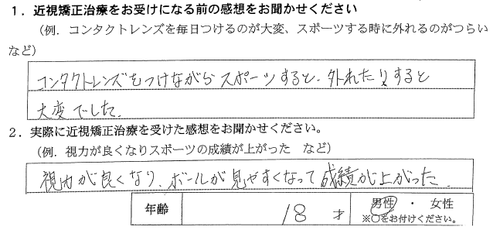 １．近視矯正治療をお受けになる前の感想をお聞かせください
（例．コンタクトレンズを毎日つけるのが大変、スポーツする時に外れるのがつらい
など）
コンタクトレンズをつけながらスポーツすると、外れたりすると
大変でした。
２．実際に近視矯正治療を受けた感想をお聞かせください。
（例．視力が良くなりスポーツの成績が上がった　など）
視力が良くなり、ボールが見やすくなって成績が上がった。
年齢　18 才　男性 ・ 女性
※○をお付けください。